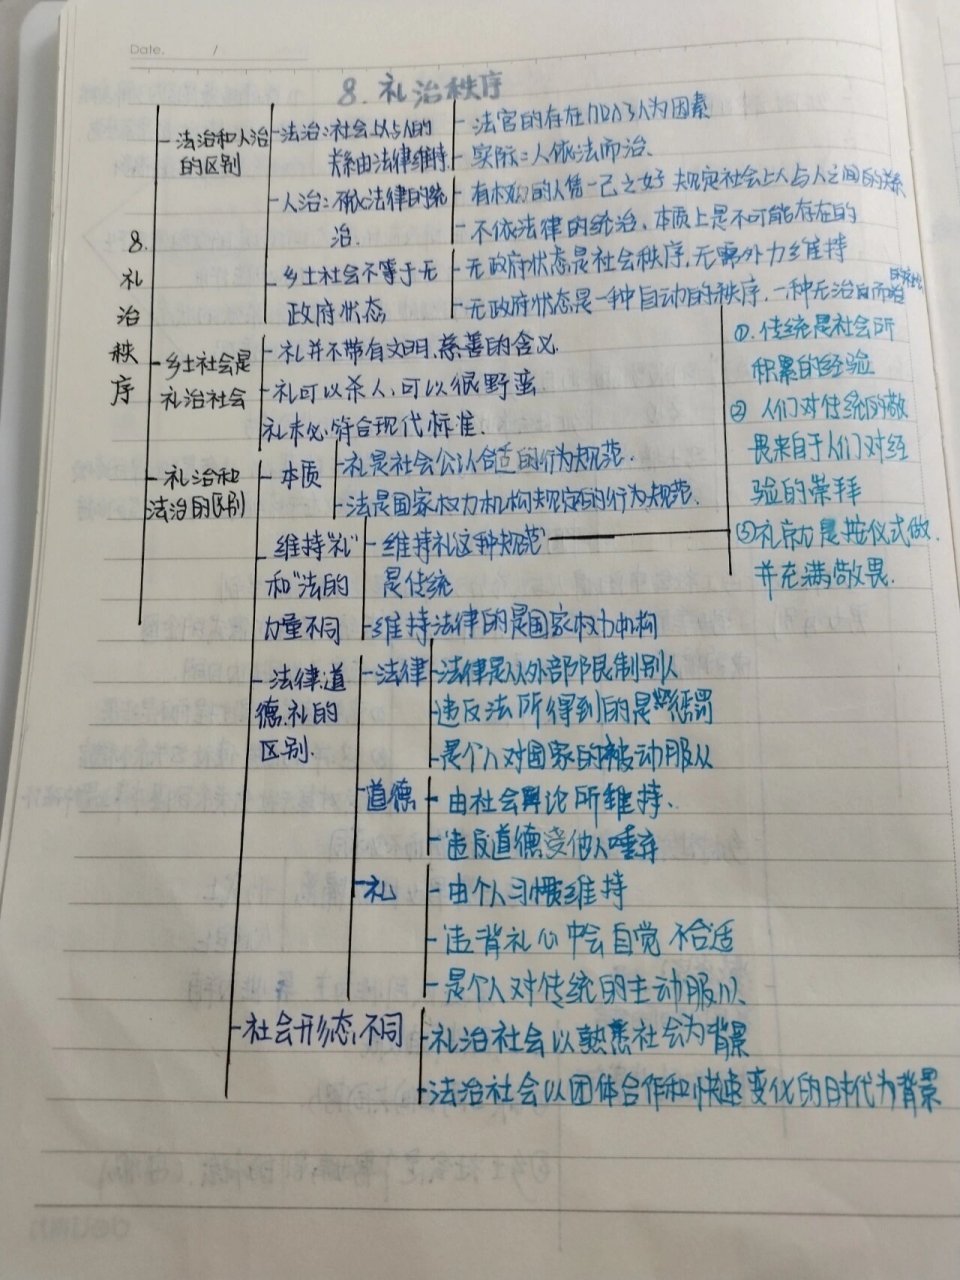 Date. /
8. 礼治秩序
8. 礼治秩序
法治和人治的区别
法治:社会上人与人的
关系由法律维持
法官的存在加入了人为因素
实际:人依法而治.
人治:不依法律的统
治.
有权的人凭一己之好 规定社会上人与人之间的关系
不依法律的统治,本质上是不可能存在的
乡土社会不等于无
政府状态
无政府状态是社会秩序,无需外力维持
无政府状态是一种自动的秩序,一种无治自而治
的社会
乡土社会是
礼治社会
礼并不带有文明,慈善的含义.
礼可以杀人,可以很野蛮
礼未必符合现代标准.
礼治和
法治的区别
本质
礼是社会公认合适的行为规范.
法是国家权力机构规定的行为规范.
维持"礼"
和"法的
力量不同
维持礼这种规范
是传统
①. 传统是社会所
积累的经验
② 人们对传统的敬
畏来自于人们对经
验的崇拜
③礼就是按仪式做.
并充满敬畏.
维持法律的是国家权力机构
法律道
德,礼的
区别.
法律
法律是从外部限制别人
违反法所得到的是惩罚
是个人对国家的被动服从
道德
由社会舆论所维持.
违反道德受他人唾弃
礼
由个人习惯维持
违背礼心中会自觉不合适
是个人对传统的主动服从.
社会形态不同
礼治社会以熟悉社会为背景
法治社会以团体合作和快速变化的时代为背景
deli